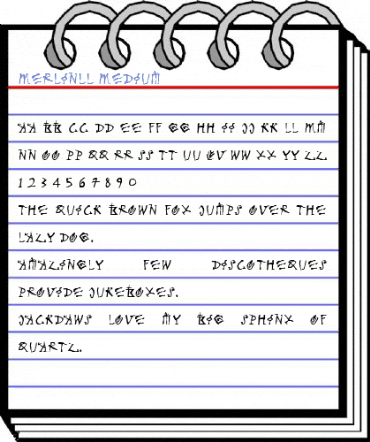 MERLINLL MEDIUM
AA BB CC DD EE FF GG HH II JJ KK LL MM
NN OO PP QQ RR SS TT UU VV WW XX YY ZZ
1 2 3 4 5 6 7 8 9 0
THE QUICK BROWN FOX JUMPS OVER THE
LAZY DOG.
AMAZINGLY FEW DISCOTHEQUES
PROVIDE JUKEBOXES.
JACKDAWS LOVE MY BIG SPHINX OF
QUARTZ.